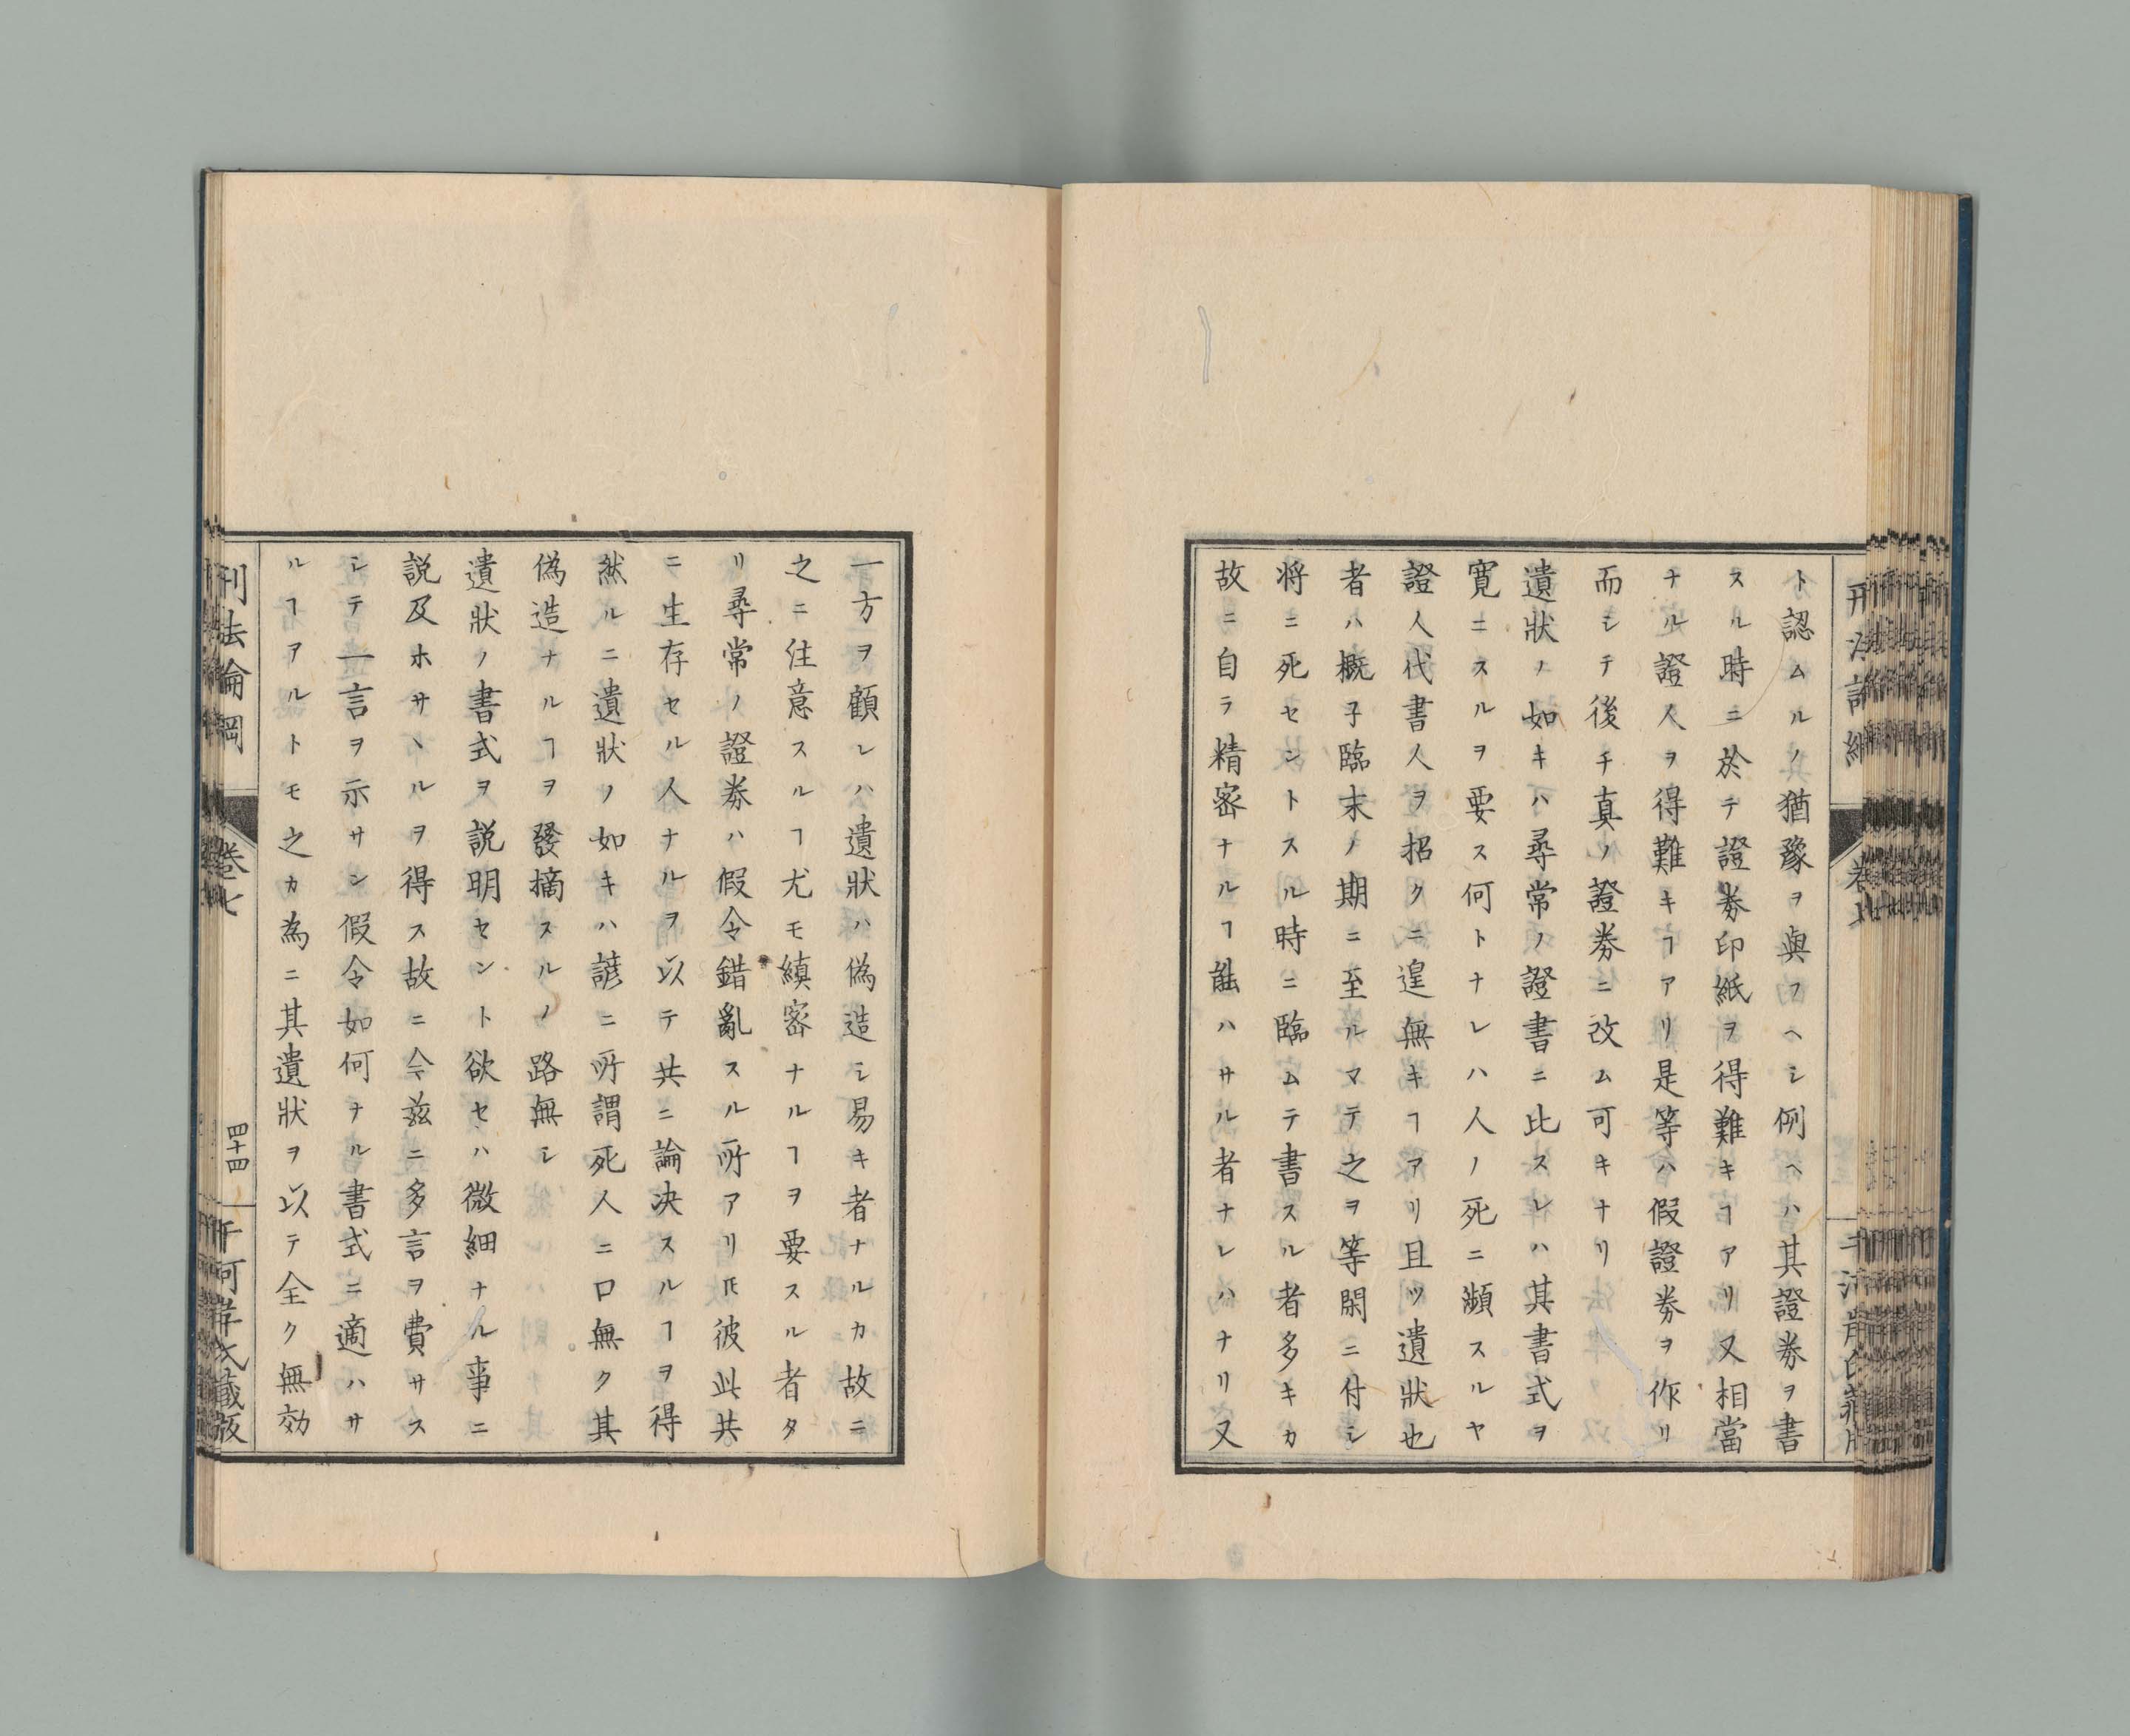 ト認ムルノ猶豫ヲ與フヘシ例ヘハ其證券ヲ書
スル時ニ於テ證券印紙ヲ得難キヿアリ又相當
ナル證人ヲ得難キヿアリ是等ハ假證券ヲ作リ
而シテ後チ真ノ證券ニ改ム可キナリ
遺狀ノ如キハ尋常ノ證書ニ比スレハ其書式ヲ
寛ニスルヲ要ス何トナレハ人ノ死ニ瀕スルヤ
證人代書人ヲ招クニ遑無キヿアリ且ツ遺狀也
者ハ概子臨末ノ期ニ至ルマテ之ヲ等閑ニ付シ
将ニ死セントスル時ニ臨ムテ書スル者多キカ
故ニ自ラ精密ナルヿ能ハサル者ナレハナリ又
一方ヲ顧レハ遺狀ハ偽造シ易キ者ナルカ故ニ
之ニ注意スルヿ尤モ縝密ナルヿヲ要スル者タ
リ尋常ノ證券ハ假令錯亂スル所アリ𪜈彼此共
ニ生存セル人ナルヲ以テ共ニ論决スルヿヲ得
然ルニ遺狀ノ如キハ諺ニ所謂死人ニ口無ク其
偽造ナルヿヲ發摘スルノ路無シ
遺狀ノ書式ヲ説明セント欲セハ微細ナル事ニ
説及ホサヽルヲ得ス故ニ今茲ニ多言ヲ費サス
シテ一言ヲ示サン假令如何ナル書式ニ適ハサ
ルヿアルトモ之カ為ニ其遺狀ヲ以テ全ク無効
刑法論綱
卷七
四十四
千河岸氏藏版